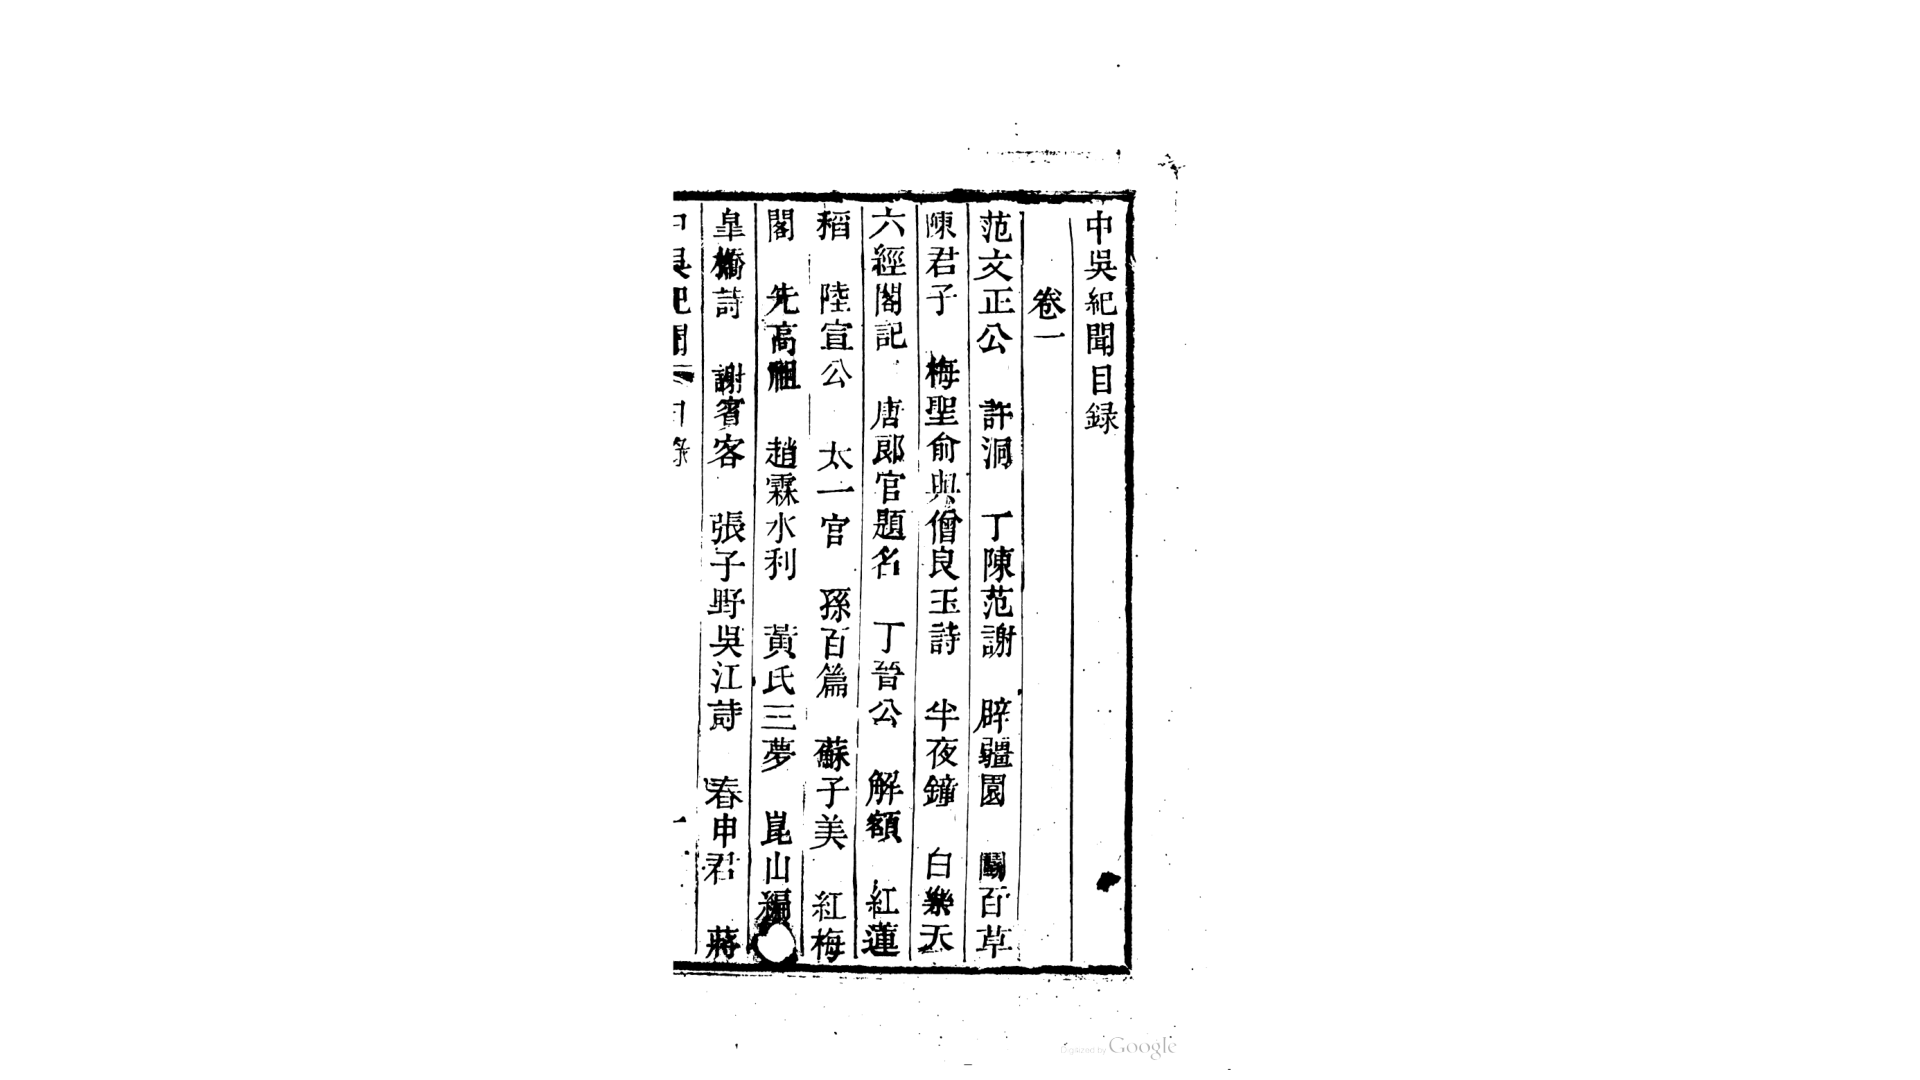 中吳紀聞目録
卷一
范文正公 許洞 丁陳范謝 辟疆園 鬭百草
陳君子 梅聖俞與僧良玉詩 半夜鐘 白樂天
六經閣記 唐郎官題名 丁晉公 解額 紅蓮
稻 陸宣公 太一宮 孫百篇 蘇子美 紅梅
閣 先高祖 趙霖水利 黃氏三夢 崑山編
皐橋詩 謝賓客 張子野吳江詩 春申君 蔣
中吳紀聞 目錄 一
Digitized by Google